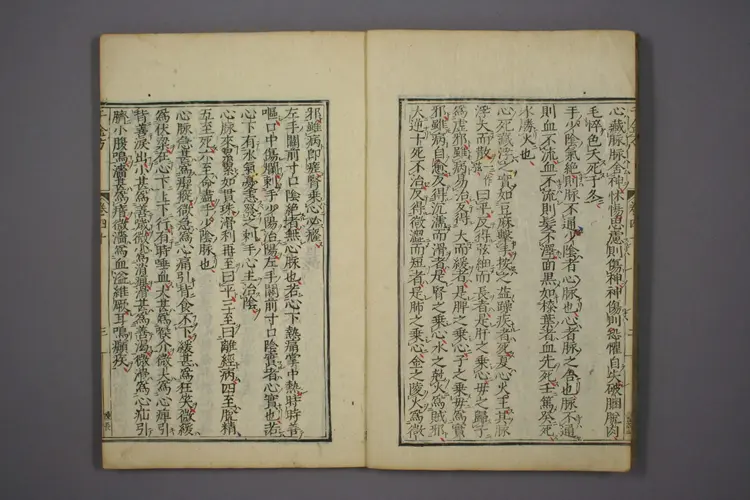 心藏脉脉舍神怵惕思慮則傷神神傷則恐懼自失破䐃脫肉
毛悴色夭死于冬
手少陰氣絕則脉不通少陰者心脉也心者脉之合也脉不通
則血不流血不流則髮不澤面黑如漆柴者血先死壬篤癸死
水勝火也
心死藏浮之實如豆麻擊手按之益躁疾者死夏心火王其脉
浮大而散 曰平反得弦細而長者是肝之乘心母之歸子
為虛邪雖病易治反得大而緩者是脾之乘心子之乘母為實
邪雖病自愈反得沉濡而滑者是腎之乘心水之尅火為賊邪
大逆十死不治反得微濇而短者是肺之乘心金之陵火為微
邪雖病即瘥腎乘心必癃
左手關前寸口陰絕者無心脉也苦心下熱痛掌中熱時時善
嘔口中傷爛刺手少陽治陽左手關前寸口陰實者心實也苦
心下有水氣憂恚發之刺手心主治陰
心脉來累累如貫珠滑利再至曰平三至曰離經病四至脫精
五至死六至命盡手少陰脉也
心脉急甚為瘈瘲微急為心痛引背食不下緩甚為狂笑微緩
為伏梁在心下上下行有時唾血大甚為喉介微大為心痺引
背善淚出小甚為善噦微小為消癉滑甚為善渴微滑為心疝引
臍小腹鳴濇甚為瘖微濇為血溢維厥耳鳴癲疾
千金方 卷四十 三